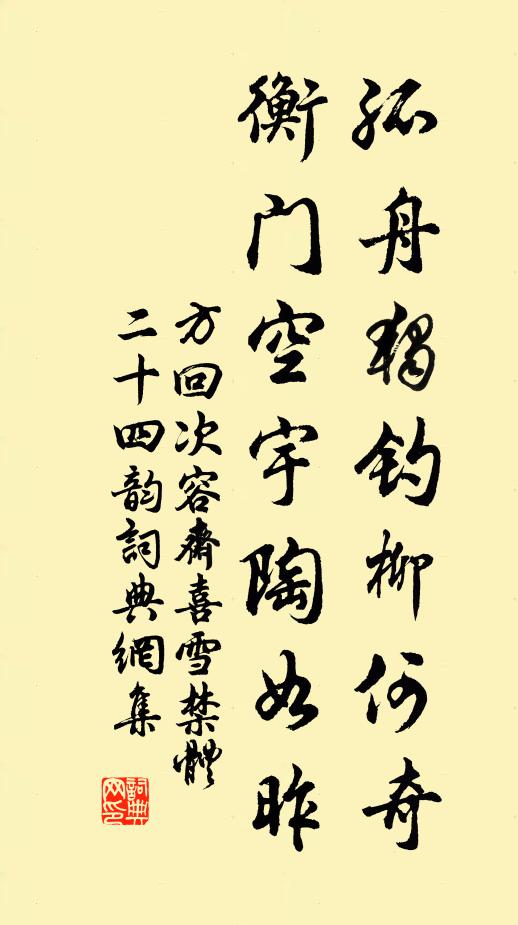 孤舟獨釣柳何奇
衡门空宇陶如昨
方回次容齋喜雪禁體
二十四韵詞典網集
詞典
网印